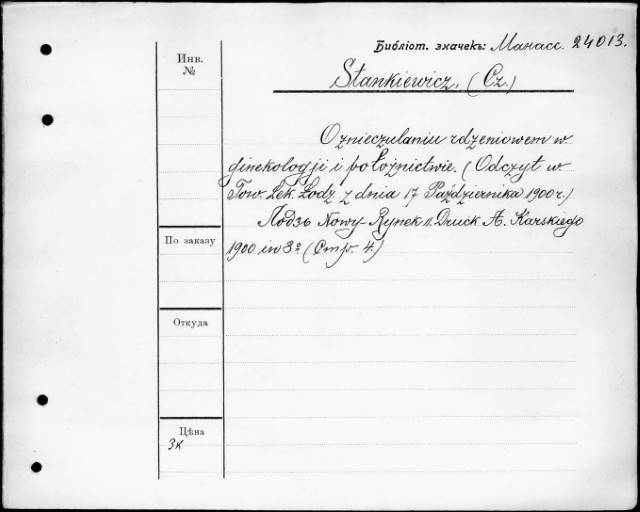 Библіот. значекъ: Манасс. 24013.
Инв.
№
Stankiewicz, (Cz.)
O znieczulaniu rdzeniowem w
ginekologji i położnictwie. (Odczyt w
Tow. Lek. Łodz. z dnia 17 Października 1900 r.)
Лодзь Nowy-Rynek 11. Druck A. Karskiego
1900 in 8º (Стр. 4.)
По заказу
Откуда
Цѣна
3к